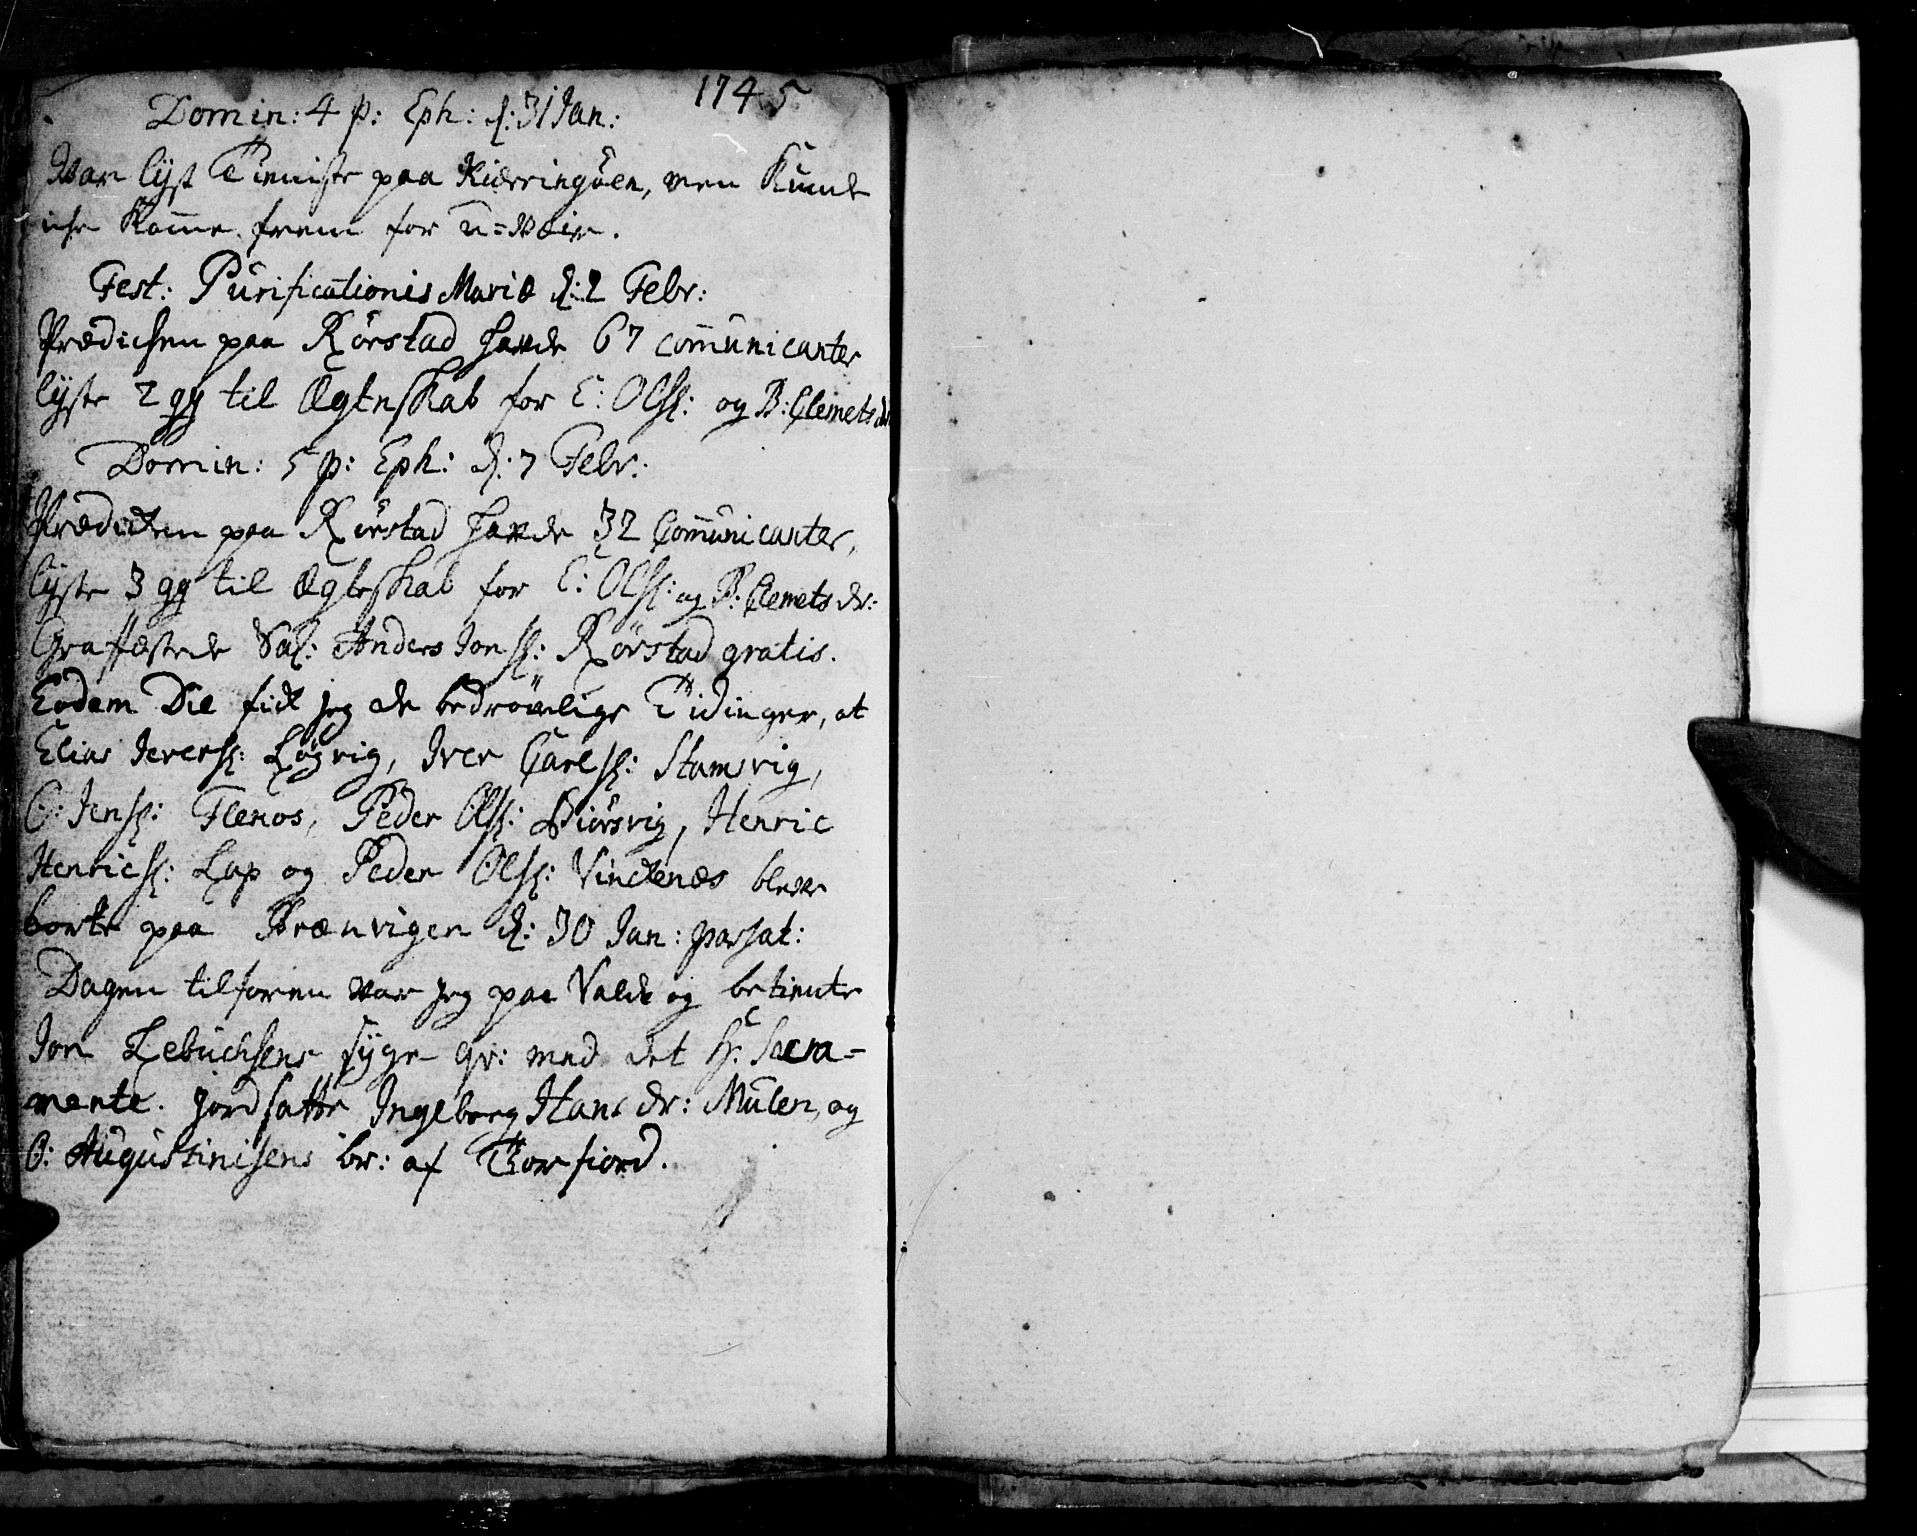 1745
Domin: 4 p: Eph: d: 31 Jan:
War lyst Tieniste paa Kierringöen, men Kunde
iche Komme frem for u=Weir.
Fest: Purificationis Mariæ d: 2 Febr:
Prædichen paa Rörstad hawde 67 communicanter
lyste 2 gg til Ægteskab for E: Olss: og B: Clemetsdr
Domin: 5 p: Eph: d: 7 Febr:
Prædicken paa Rörstad hawde 32 Communicanter,
lyste 3 gg til Ægteskab for E: Olss: og B: Clemets dr:
Graffæstede Sal: Anders Jonss: Rörstad gratis.
Eodem Die fick jeg de bedröwelige Tidinger, at
Elias Iverss: Løgvig, Iver Carlss: Stamsvig,
O: Jenss: Flenos, Peder Olss: Diörsvig, Henric
Henricss: Lap og Peder Olss: Vindtenæs blewe
borte paa Brænvigen d: 30 Jan: passat:
Dagen tilforen war jeg paa Valde og betiente
Jon Zebuchsens syge qv: med det H: Sacra-
mente. jordsatte Ingeborg Hans dr: Mulen, og
O: Augustinisens br: af Torfiord.